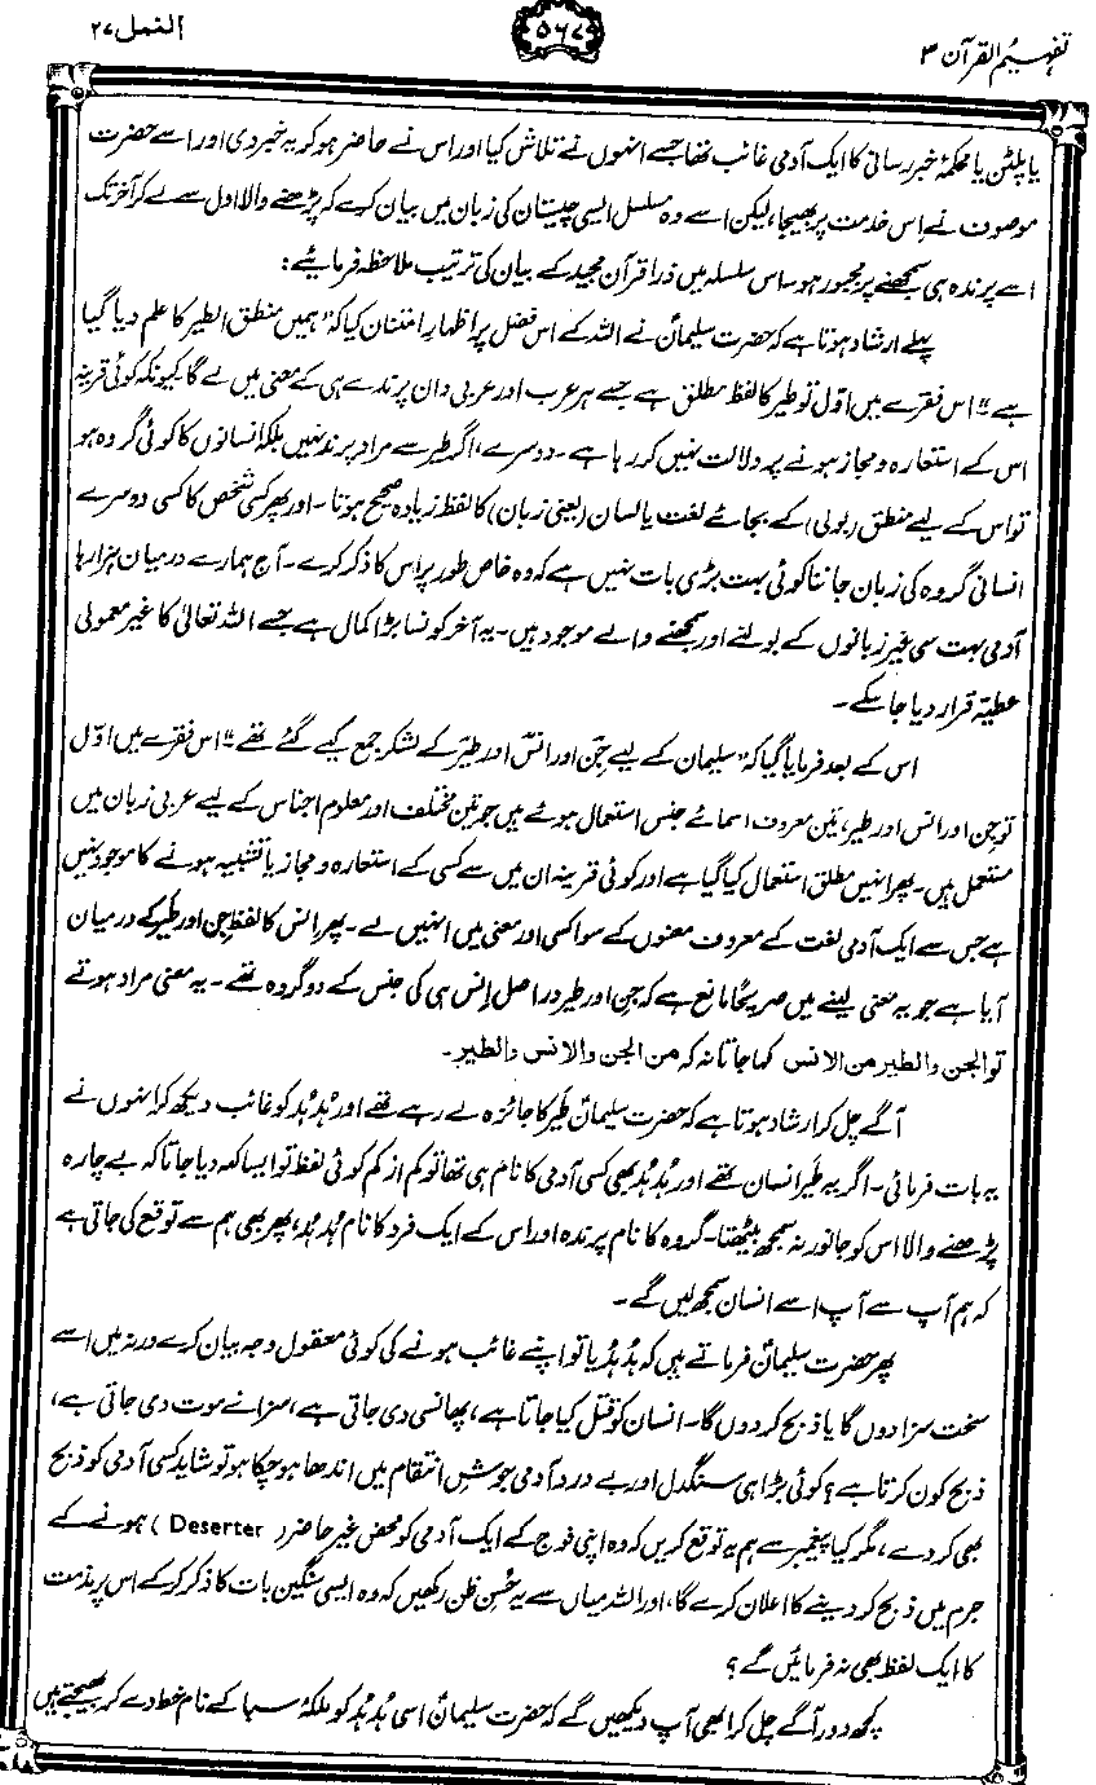 تفہیم القرآن ۳
۵۶۷
النمل ۲۷
یا پلٹن یا محکمۂ خبر رسانی کا ایک آدمی غائب تھا جسے انہوں نے تلاش کیا اور اس نے حاضر ہو کر یہ خبر دی اور اسے حضرت
موصوف نے اِس خدمت پر بھیجا، لیکن اسے وہ مسلسل ایسی چیستان کی زبان میں بیان کرے کہ پڑھنے والا اول سے لے کر آخر تک
اسے پرندہ ہی سمجھنے پر مجبور ہو۔ اس سلسلہ میں ذرا قرآن مجید کے بیان کی ترتیب ملاحظہ فرمائیے:
پہلے ارشاد ہوتا ہے کہ حضرت سلیمانؑ نے اللہ کے اس فضل پر اظہارِ امتنان کیا کہ "ہمیں منطق الطیر کا علم دیا گیا
ہے"۔ اس فقرے میں اوّل تو طیر کا لفظ مطلق ہے جسے ہر عرب اور عربی دان پرندے ہی کے معنی میں لے گا کیونکہ کوئی قرینہ
اس کے استعارہ و مجاز ہونے پر دلالت نہیں کر رہا ہے۔ دوسرے، اگر طیر سے مراد پرند نہیں بلکہ انسانوں کا کوئی گروہ ہو
تو اس کے لیے منطق (بولی) کے بجائے لغت یا لسان (یعنی زبان) کا لفظ زیادہ صحیح ہوتا۔ اور پھر کسی شخص کا کسی دوسرے
انسانی گروہ کی زبان جاننا کوئی بہت بڑی بات نہیں ہے کہ وہ خاص طور پر اس کا ذکر کرے۔ آج ہمارے درمیان ہزارہا
آدمی بہت سی غیر زبانوں کے بولنے اور سمجھنے والے موجود ہیں۔ یہ آخر کونسا بڑا کمال ہے جسے اللہ تعالیٰ کا غیر معمولی
عطیّہ قرار دیا جا سکے۔
اس کے بعد فرمایا گیا کہ "سلیمان کے لیے جِن اور انس اور طیر کے لشکر جمع کیے گئے تھے"۔ اس فقرے میں اوّل
تو جِن اور انس اور طیر، تین معروف اسمائے جنس استعمال ہوئے ہیں جو تین مختلف اور معلوم اجناس کے لیے عربی زبان میں
مستعمل ہیں۔ پھر انہیں مطلق استعمال کیا گیا ہے اور کوئی قرینہ ان میں سے کسی کے استعارہ و مجاز یا تشبیہ ہونے کا موجود نہیں
ہے جس سے ایک آدمی لغت کے معروف معنوں کے سوا کسی اور معنی میں انہیں لے۔ پھر انس کا لفظ جِن اور طیر کے درمیان
آیا ہے جو یہ معنی لینے میں صریحًا مانع ہے کہ جِن اور طیر دراصل اِنس ہی کی جنس کے دو گروہ تھے۔ یہ معنی مراد ہوتے
تو الجن والطیر من الانس کہا جاتا نہ کہ من الجن والانس والطیر۔
آگے چل کر ارشاد ہوتا ہے کہ حضرت سلیمانؑ طَیر کا جائزہ لے رہے تھے اور ہُدہُد کو غائب دیکھ کر انہوں نے
یہ بات فرمائی۔ اگر یہ طَیر انسان تھے اور ہُدہُد بھی کسی آدمی کا نام ہی تھا تو کم از کم کوئی لفظ تو ایسا کہہ دیا جاتا کہ بے چارہ
پڑھنے والا اس کو جانور نہ سمجھ بیٹھتا۔ گروہ کا نام پرندہ اور اس کے ایک فرد کا نام ہُدہُد، پھر بھی ہم سے توقع کی جاتی ہے
کہ ہم آپ سے آپ اسے انسان سمجھ لیں گے۔
پھر حضرت سلیمانؑ فرماتے ہیں کہ ہُدہُد یا تو اپنے غائب ہونے کی کوئی معقول وجہ بیان کرے ورنہ میں اسے
سخت سزا دوں گا یا ذبح کر دوں گا۔ انسان کو قتل کیا جاتا ہے، پھانسی دی جاتی ہے، سزائے موت دی جاتی ہے،
ذبح کون کرتا ہے؟ کوئی بڑا ہی سنگدل اور بے درد آدمی جوشِ انتقام میں اندھا ہو چکا ہو تو شاید کسی آدمی کو ذبح
بھی کر دے، مگر کیا پیغمبر سے ہم یہ توقع کریں کہ وہ اپنی فوج کے ایک آدمی کو محض غیر حاضر (Deserter) ہونے کے
جرم میں ذبح کر دینے کا اعلان کرے گا، اور اللہ میاں سے یہ حُسنِ ظن رکھیں کہ وہ ایسی سنگین بات کا ذکر کر کے اس پر مذمت
کا ایک لفظ بھی نہ فرمائیں گے؟
کچھ دور آگے چل کر ابھی آپ دیکھیں گے کہ حضرت سلیمانؑ اسی ہُدہُد کو ملکۂ سبا کے نام خط دے کر بھیجتے ہیں